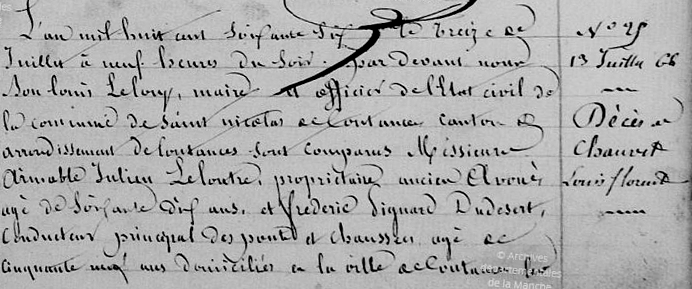 L'an mil huit cent soixante six le treize de
Juillet à neuf heures du soir. par devant nous
Bon louis Leloup, maire et officier de l'Etat civil de
la commune de Saint nicolas de Coutances canton &
arrondissement de Coutances sont comparus Messieurs
Aimable Julien Leloutre, propriétaire ancien Avoué
agé de soixante dix ans, et frederic Signard Dudesert,
Conducteur principal des ponts et chaussées agé de
Cinquante neuf ans domiciliés en la ville de Coutances
N° 25
13 Juillet 66
Décès de
Chauvet
Louis florent
© Archives
départementales
de la Manche